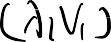 (λ₁V₁)